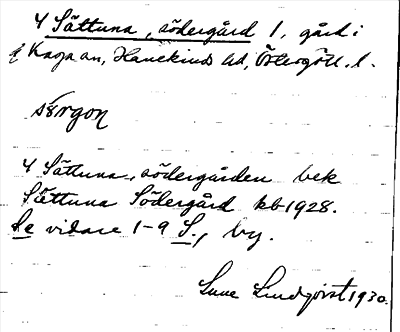 4 Sättuna, södergård 1, gård i
Kaga sn, Hanekinds hd, Östergötl. l.
sørgon
4 Sättuna, södergården bek
Sättuna Södergård kb 1928.
Se vidare 1-9 S., by.
Sune Lindqvist 1930.